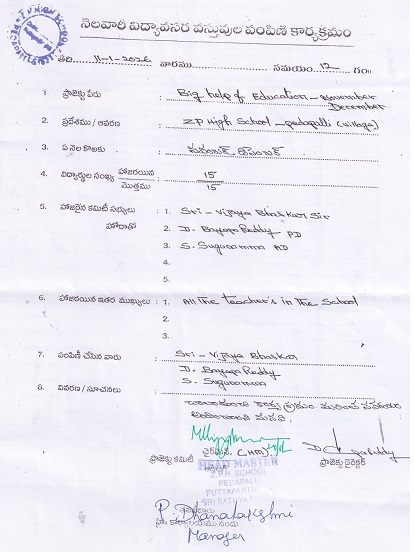 నెలవారీ విద్యావసర వస్తువుల పంపిణి కార్యక్రమం
తేది 11-1-2026 వారము సమయం 12 గం॥
1. ప్రాజెక్టు పేరు : Big help of Education - November December
2. ప్రదేశము / ఆవరణ : ZP High School - pedapalli (village)
3. ఏ నెల కొరకు : నవంబర్ డిసెంబర్
4. విద్యార్థుల సంఖ్య హాజరయిన / మొత్తము : 15 / 15
5. హాజరైన కమిటీ సభ్యులు హోదాతో : 1. Sri - Vijaya Bhaskar Sir
2. D. Bayapa Reddy PD
3. S. Sugunamma AD
4.
5.
6. హాజరయిన ఇతర ముఖ్యులు : 1. All The teacher's in The School
2.
3.
7. పంపిణీ చేసిన వారు : Sri - Vijaya Bhaskar
D. Bayapa Reddy
S. Sugunamma
8. వివరణ / సూచనలు :
ప్రాజెక్టు కమిటీ ఛైర్మన్ (HM) ప్రాజెక్టు డైరెక్టర్
HEAD MASTER
Z.P.H. SCHOOL
PEDAPALLI
PUTTAPARTHI
SRI SATHYA
P. Dhanalakshmi
Manager